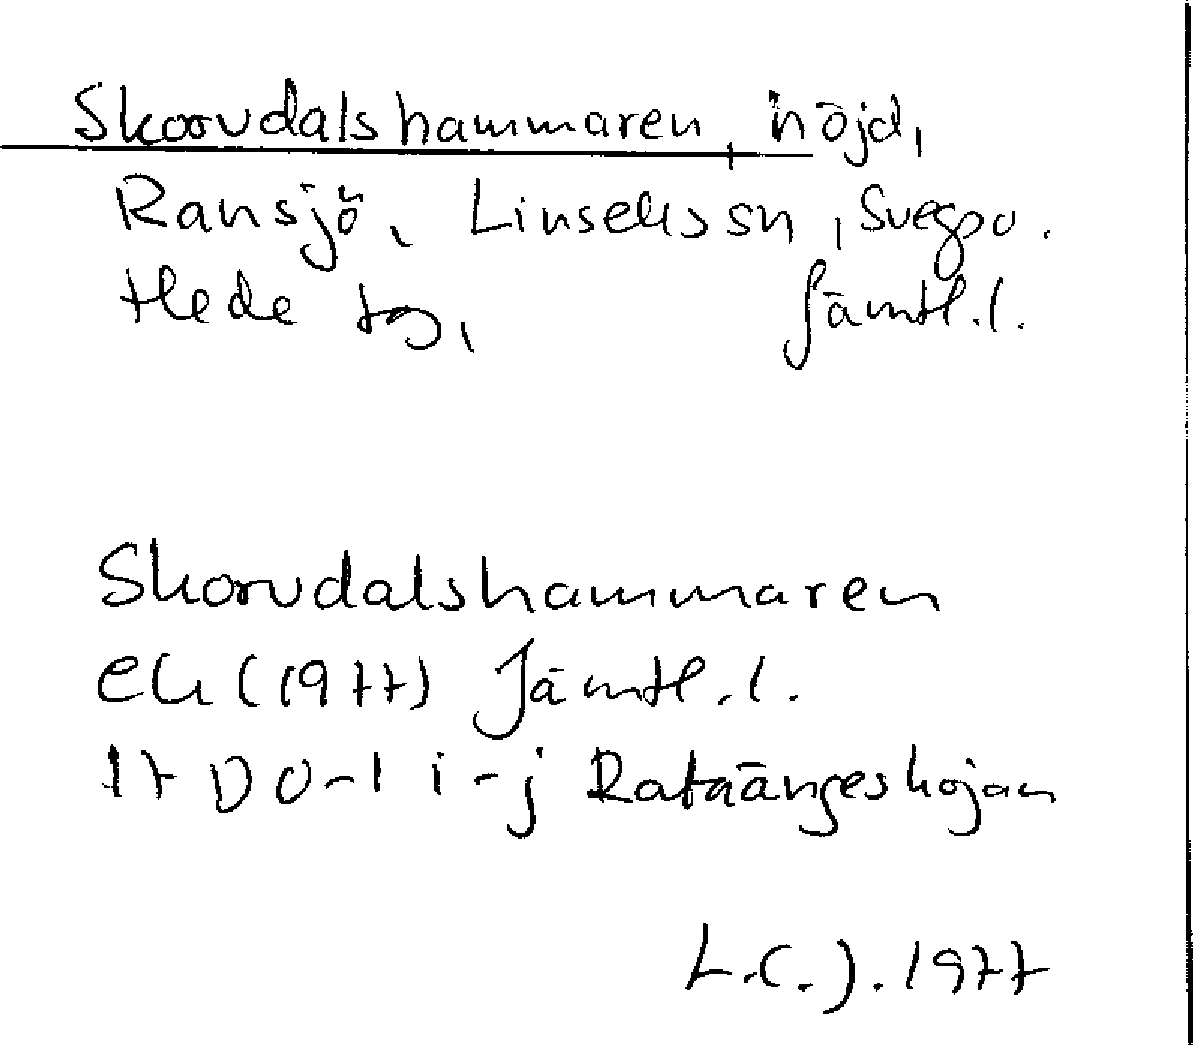 Skorvdalshammaren, höjd,
Ransjö, Linsellssn, Svegpv.
Hede tg, Jämtl.l.
Skorvdalshammaren
ek (1977) Jämtl.l.
17 D 0-1 i-j Rataängeskojan
L.C.J. 1977